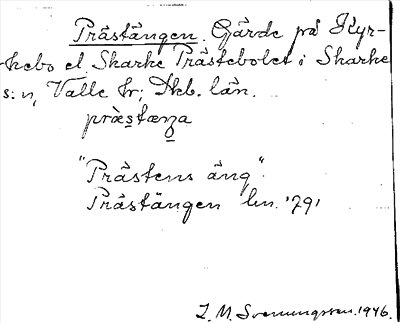 Prästängen. Gärde på Kyr-
kebo el Skarke Prästebolet i Skarke
s:n, Valle hr; Skb. län.
præ̀stæŋa
"Prästens äng"
Prästängen lm. '79'
L. M. Svenungsson. 1946.